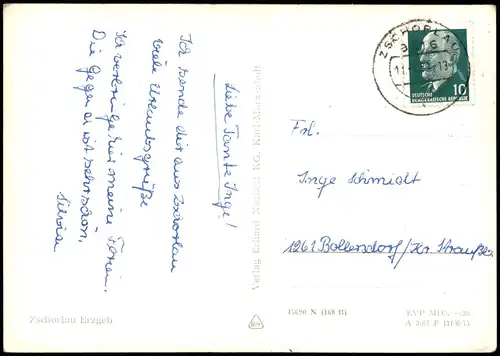 Liebe Tante Inge!
Ich sende dir aus Zschorlau
viele Urlaubsgrüße
Ich verbringe hier meine Ferien.
Die Gegend ist sehr schön.
Silvia
Zschorlau Erzgeb
Verlag Erhard Neubert KG. Karl-Marx-Stadt
ZSCHORLAU
10
DEUTSCHE
DEMOKRATISCHE REPUBLIK
Frl.
Inge Schmidt
1261 Bollersdorf/Kr. Straußb.
15690 N (168 D)
EVP MDN -,20
A 3/67 F III/6/75